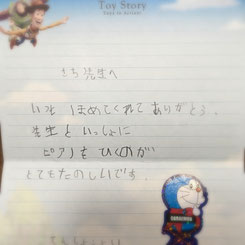 Toy Story
さち先生へ
いつもほめてくれてありがとう.
先生といっしょに
ピアノをひくのが
とてもたのしいです.
DORAEMON